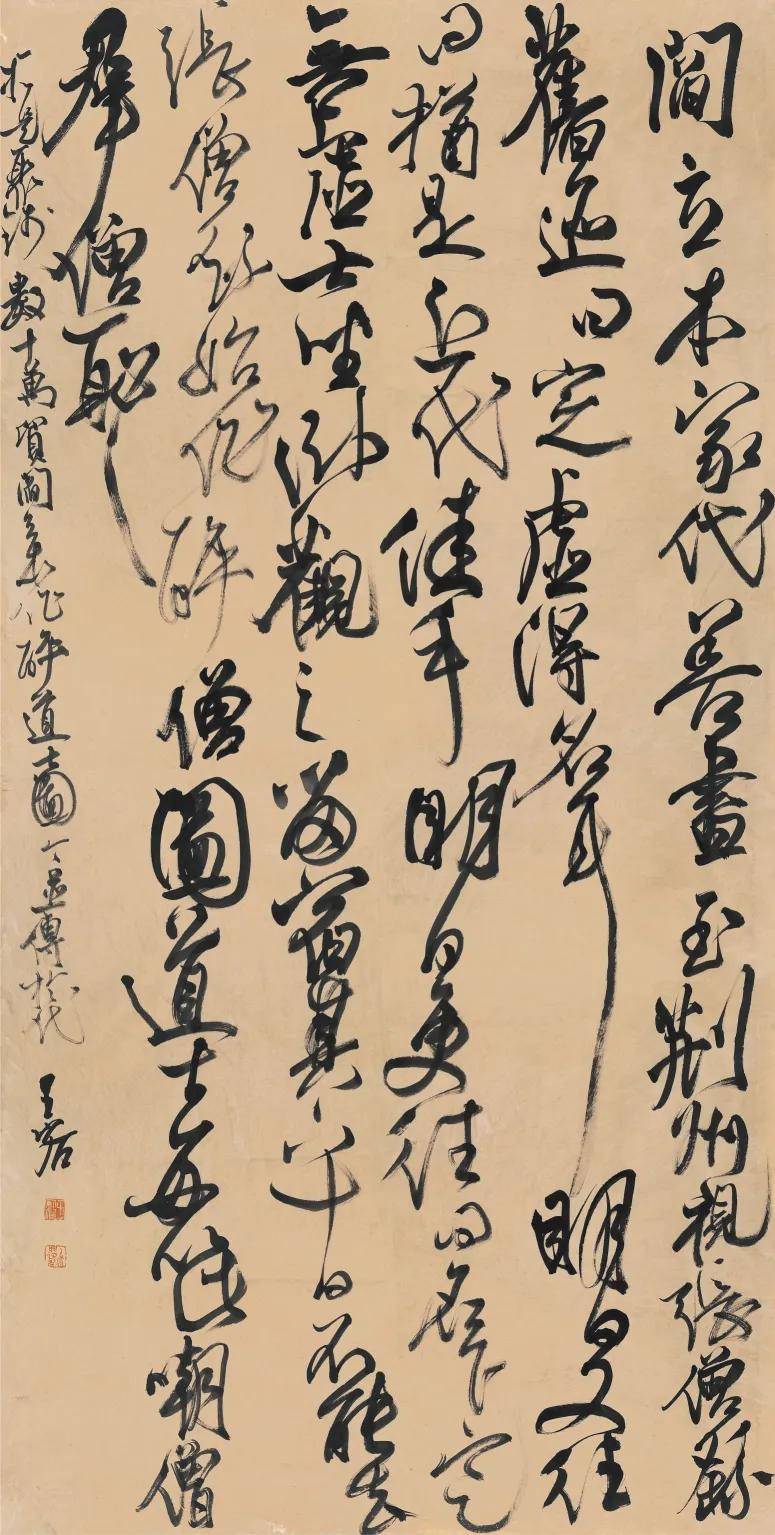 閻立本家代善畫至荊州視張僧繇
舊迹曰定虛得名耳明日又往
曰猶是近代佳手明日更往曰名下定
無虛士坐臥觀之留宿其下十日不能去
張僧繇始作醉僧圖道士每以此嘲僧
羣僧恥
於是聚錢數十萬閻立本作醉道士圖今並傳於代
王